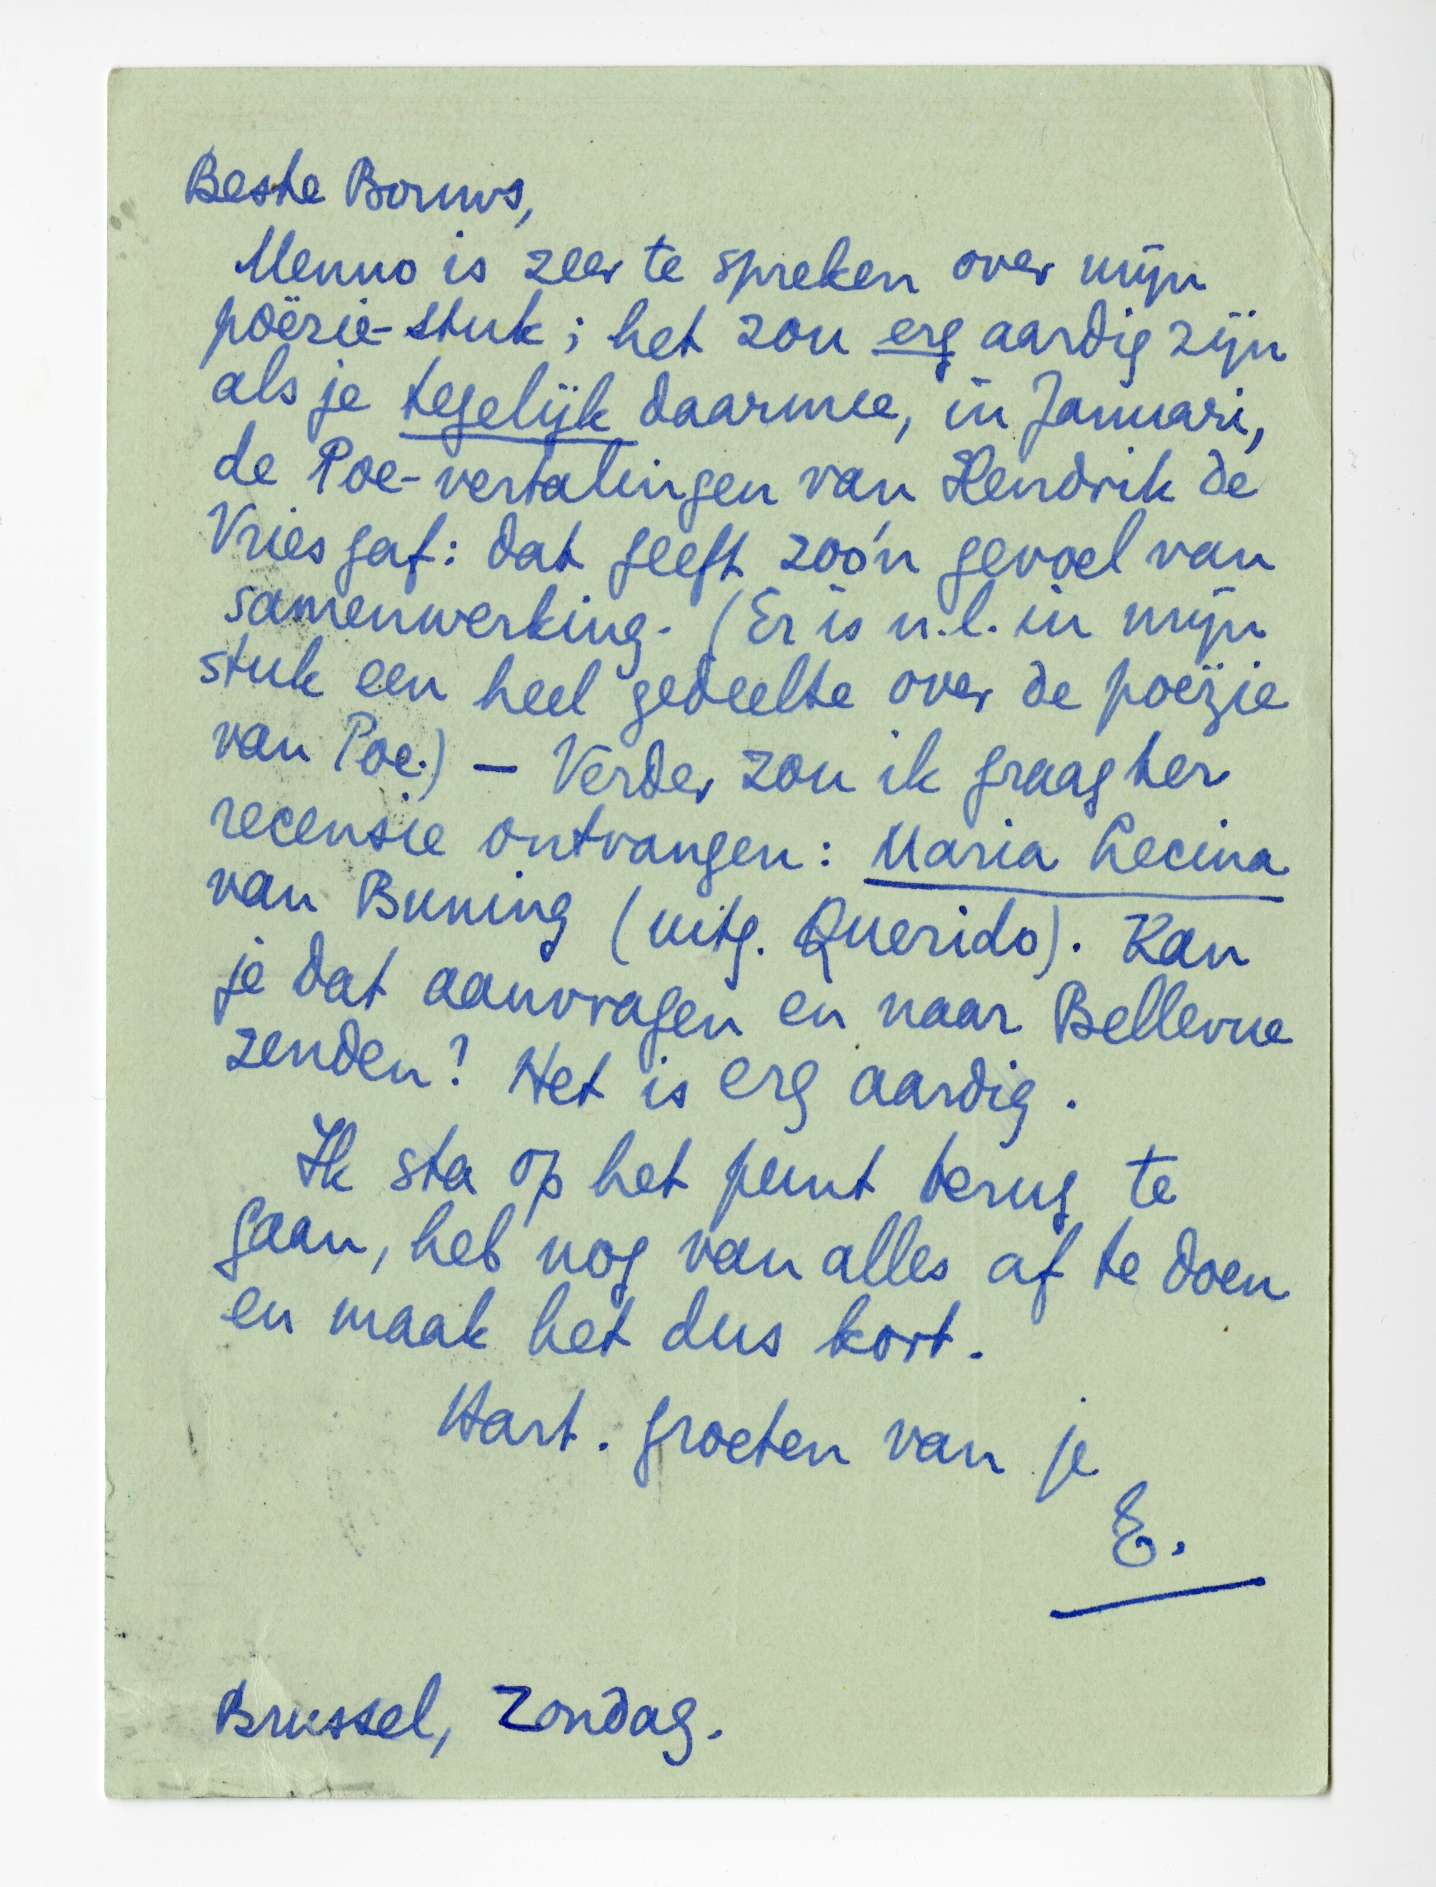 Beste Bouws,
Menno is zeer te spreken over mijn
poëzie-stuk; het zou erg aardig zijn
als je tegelijk daarmee, in Januari,
de Poe-vertalingen van Hendrik de
Vries gaf: dat geeft zoo'n gevoel van
samenwerking. (Er is n.l. in mijn
stuk een heel gedeelte over de poëzie
van Poe.) — Verder zou ik graag ter
recensie ontvangen: Maria Lecina
van Buning (uitg. Querido). Kan
je dat aanvragen en naar Bellevue
zenden? Het is erg aardig.
Ik sta op het punt terug te
gaan, heb nog van alles af te doen
en maak het dus kort.
Hart. groeten van je
E.
Brussel, Zondag.